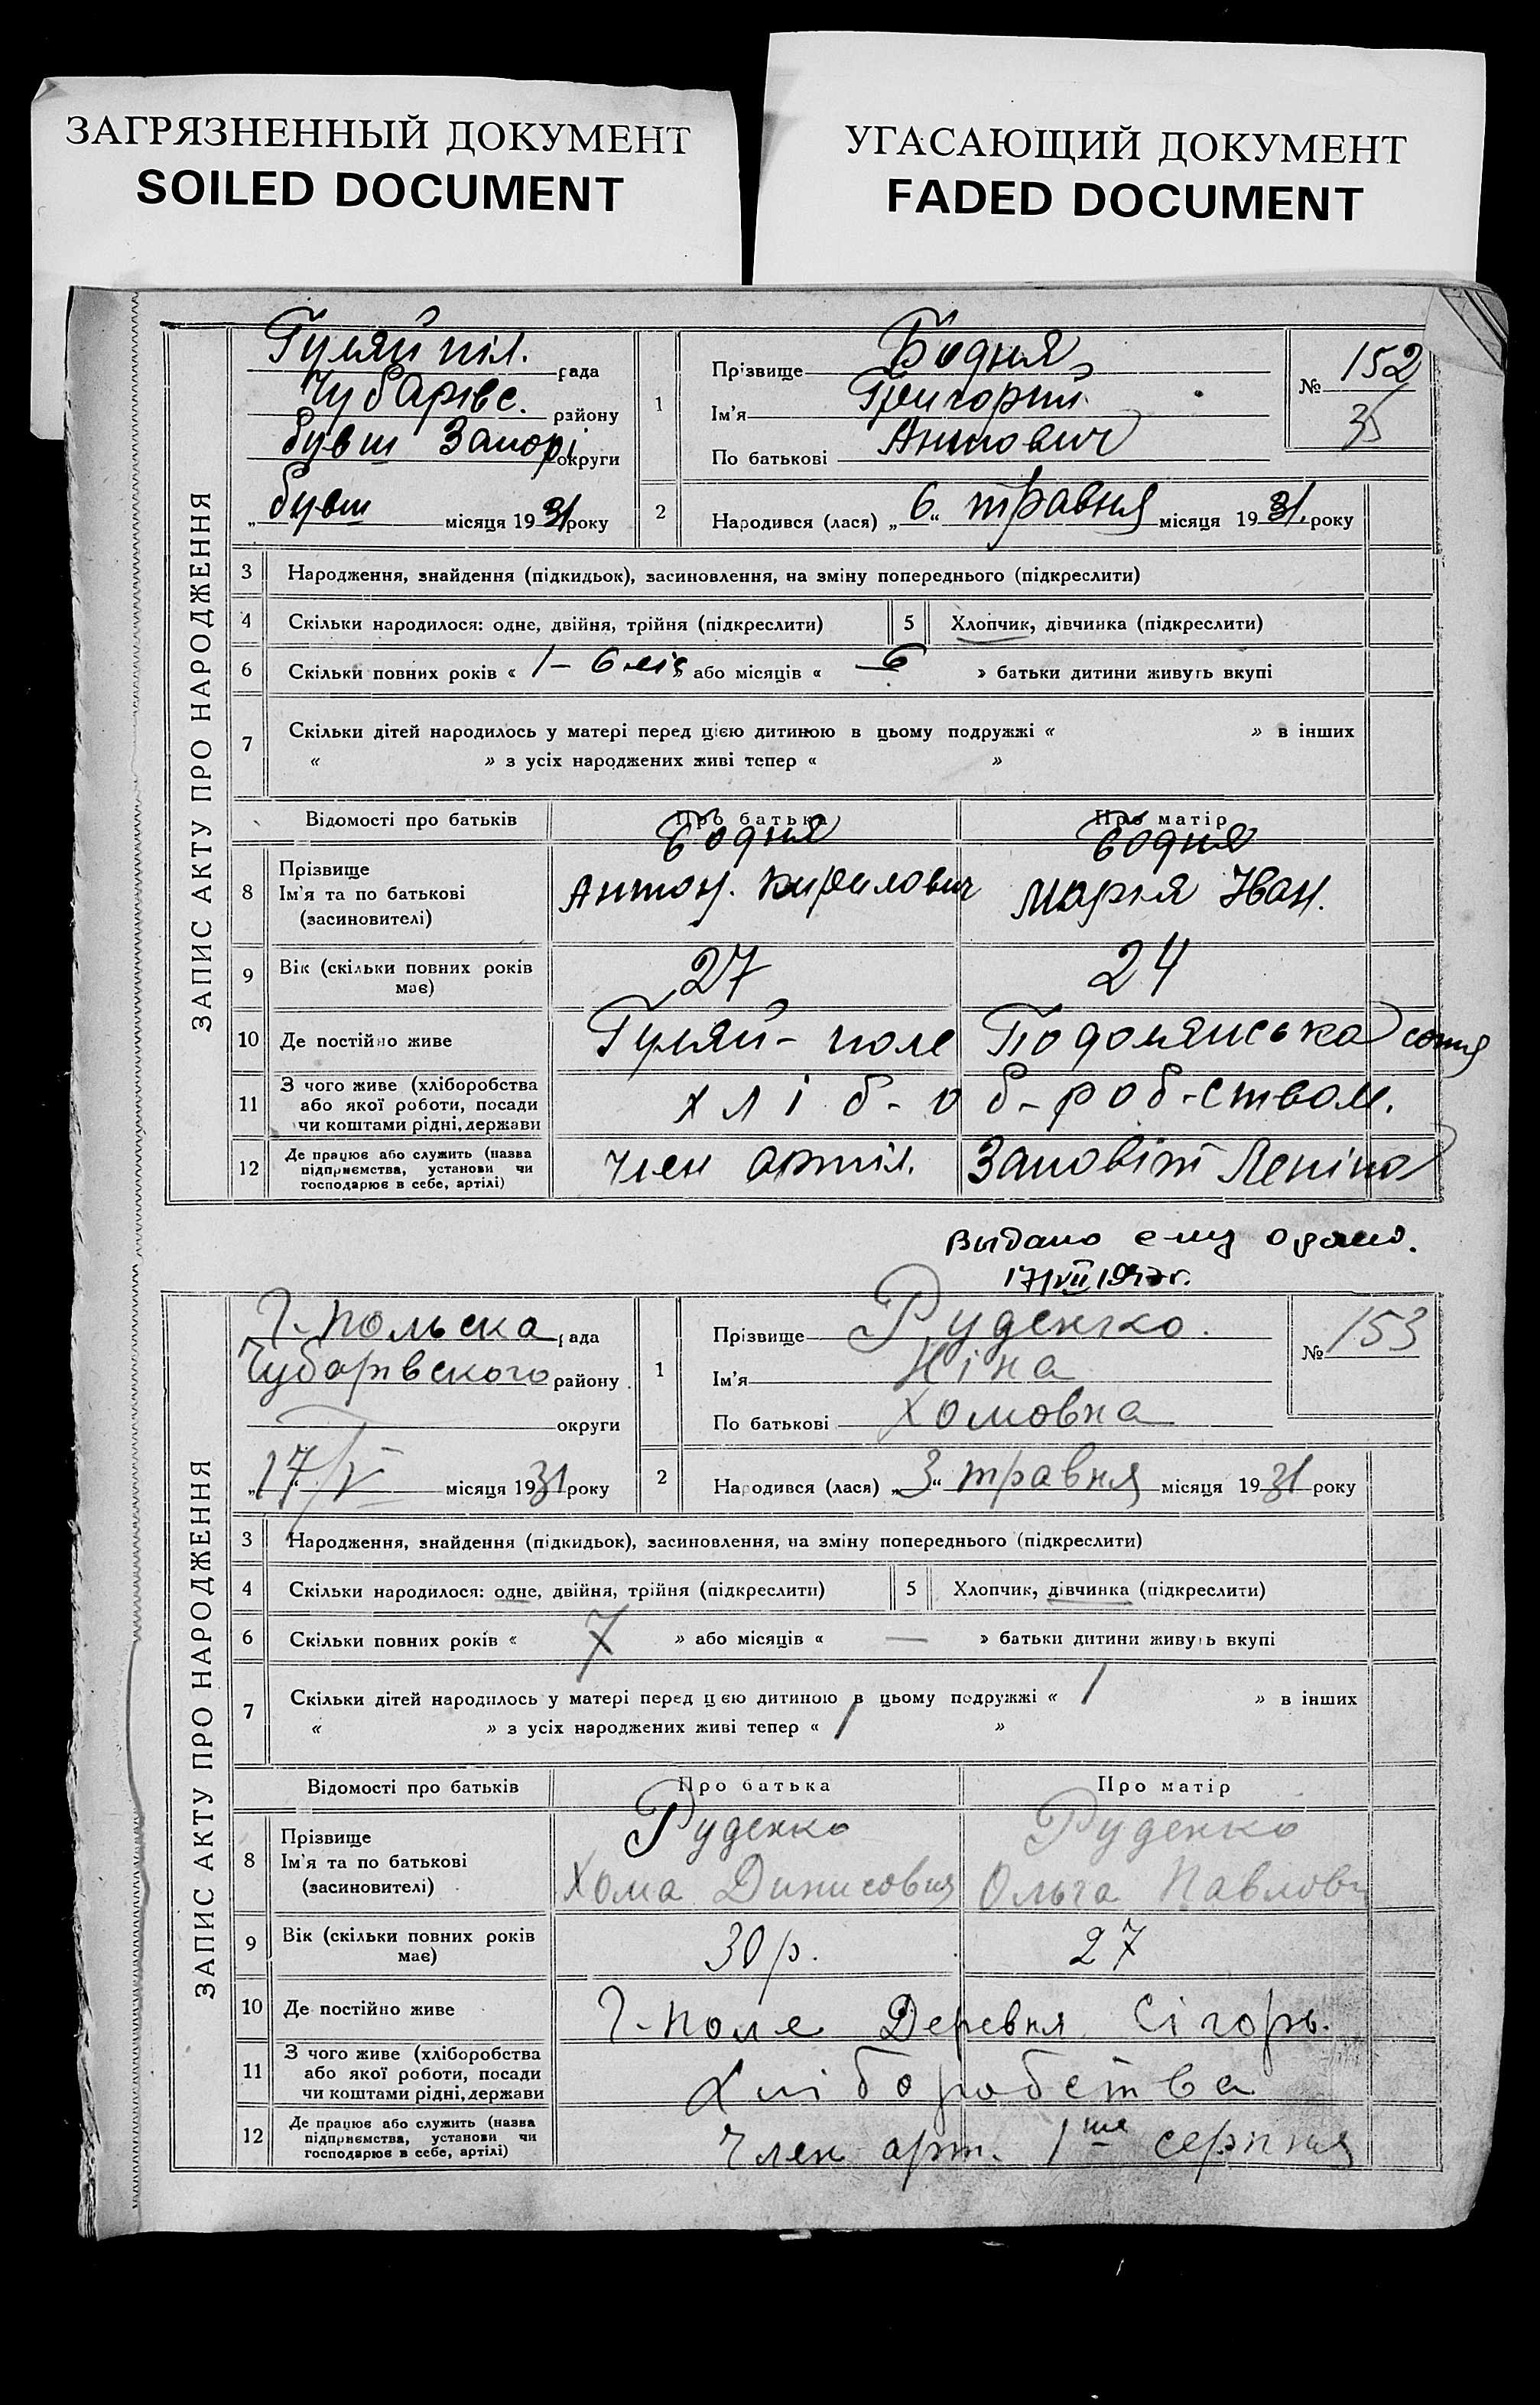 ЗАГРЯЗНЕННЫЙ ДОКУМЕНТ
SOILED DOCUMENT
УГАСАЮЩИЙ ДОКУМЕНТ
FADED DOCUMENT
ЗАПИС АКТУ ПРО НАРОДЖЕННЯ
Гуляйпіл. рада
Чубарівс. району
бувш Запорі округи
„ бувш місяця 1931 року
1 Прізвище Бодня
Ім'я Григорий
По батькові Антович
№ 152
35
2 Народився (лася) „6“ травня місяця 1931. року
3 Народження, знайдення (підкидьок), засиновлення, на зміну попереднього (підкреслити)
4 Скільки народилося: одне, двійня, трійня (підкреслити) 5 Хлопчик, дівчинка (підкреслити)
6 Скільки повних років « 1 – 6 міс » або місяців « 6 » батьки дитини живуть вкупі
7 Скільки дітей народилось у матері перед цією дитиною в цьому подружжі « » в інших
« » з усіх народжених живі тепер « »
Відомості про батьків Про батька Про матір
8 Прізвище Бодня Бодня
Ім'я та по батькові Антон. Кирилович Мария Іван.
(засиновителі)
9 Вік (скільки повних років має) 27 24
10 Де постійно живе Гуляй-поле Подолянська сотня
11 З чого живе (хліборобства або якої роботи, посади чи коштами рідні, держави хліб-об-роб-ством.
12 Де працює або служить (назва підприємства, установи чи господарює в себе, артілі) член артіл. Заповіт Леніна
Выдано ему
17/VII
ЗАПИС АКТУ ПРО НАРОДЖЕННЯ
Г-польска рада
Чубарівского району
округи
„17/V місяця 1931 року
1 Прізвище Руденко.
Ім'я Ніна
По батькові Хомовна
№ 153
2 Народився (лася) „3“ травня місяця 1931 року
3 Народження, знайдення (підкидьок), засиновлення, на зміну попереднього (підкреслити)
4 Скільки народилося: одне, двійня, трійня (підкреслити) 5 Хлопчик, дівчинка (підкреслити)
6 Скільки повних років « 7 » або місяців « — » батьки дитини живуть вкупі
7 Скільки дітей народилось у матері перед цією дитиною в цьому подружжі « 1 » в інших
« » з усіх народжених живі тепер « 1 »
Відомості про батьків Про батька Про матір
8 Прізвище Руденко Руденко
Ім'я та по батькові Хома Динисович Ольга Павловн
(засиновителі)
9 Вік (скільки повних років має) 30 р. 27
10 Де постійно живе Г-поле Деревня Сігорь.
11 З чого живе (хліборобства або якої роботи, посади чи коштами рідні, держави Хліборобства
12 Де працює або служить (назва підприємства, установи чи господарює в себе, артілі) Член арт. 1ше серпня